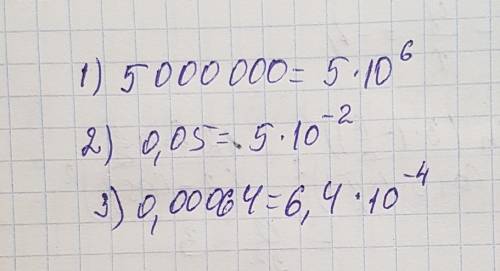 1) 5 000 000 = 5·10⁶
2) 0,05 = 5·10⁻²
3) 0,00064 = 6,4·10⁻⁴